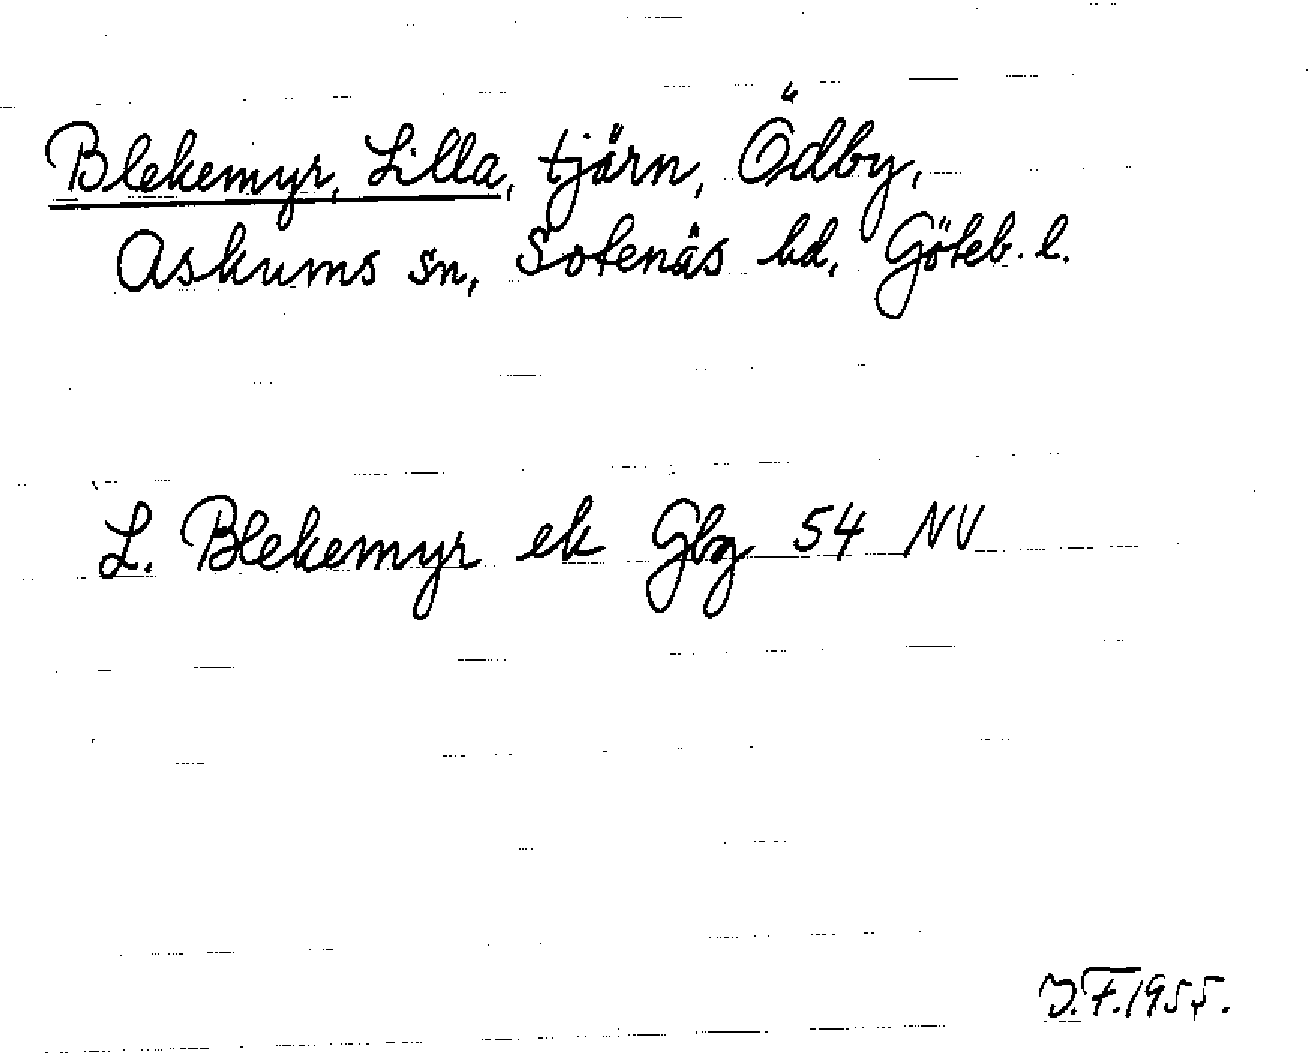 Blekemyr, Lilla, tjärn, Ödby,
Askums sn, Sotenäs hd, Göteb. l.
L. Blekemyr ek Gbg 54 NV
J.F.1955.